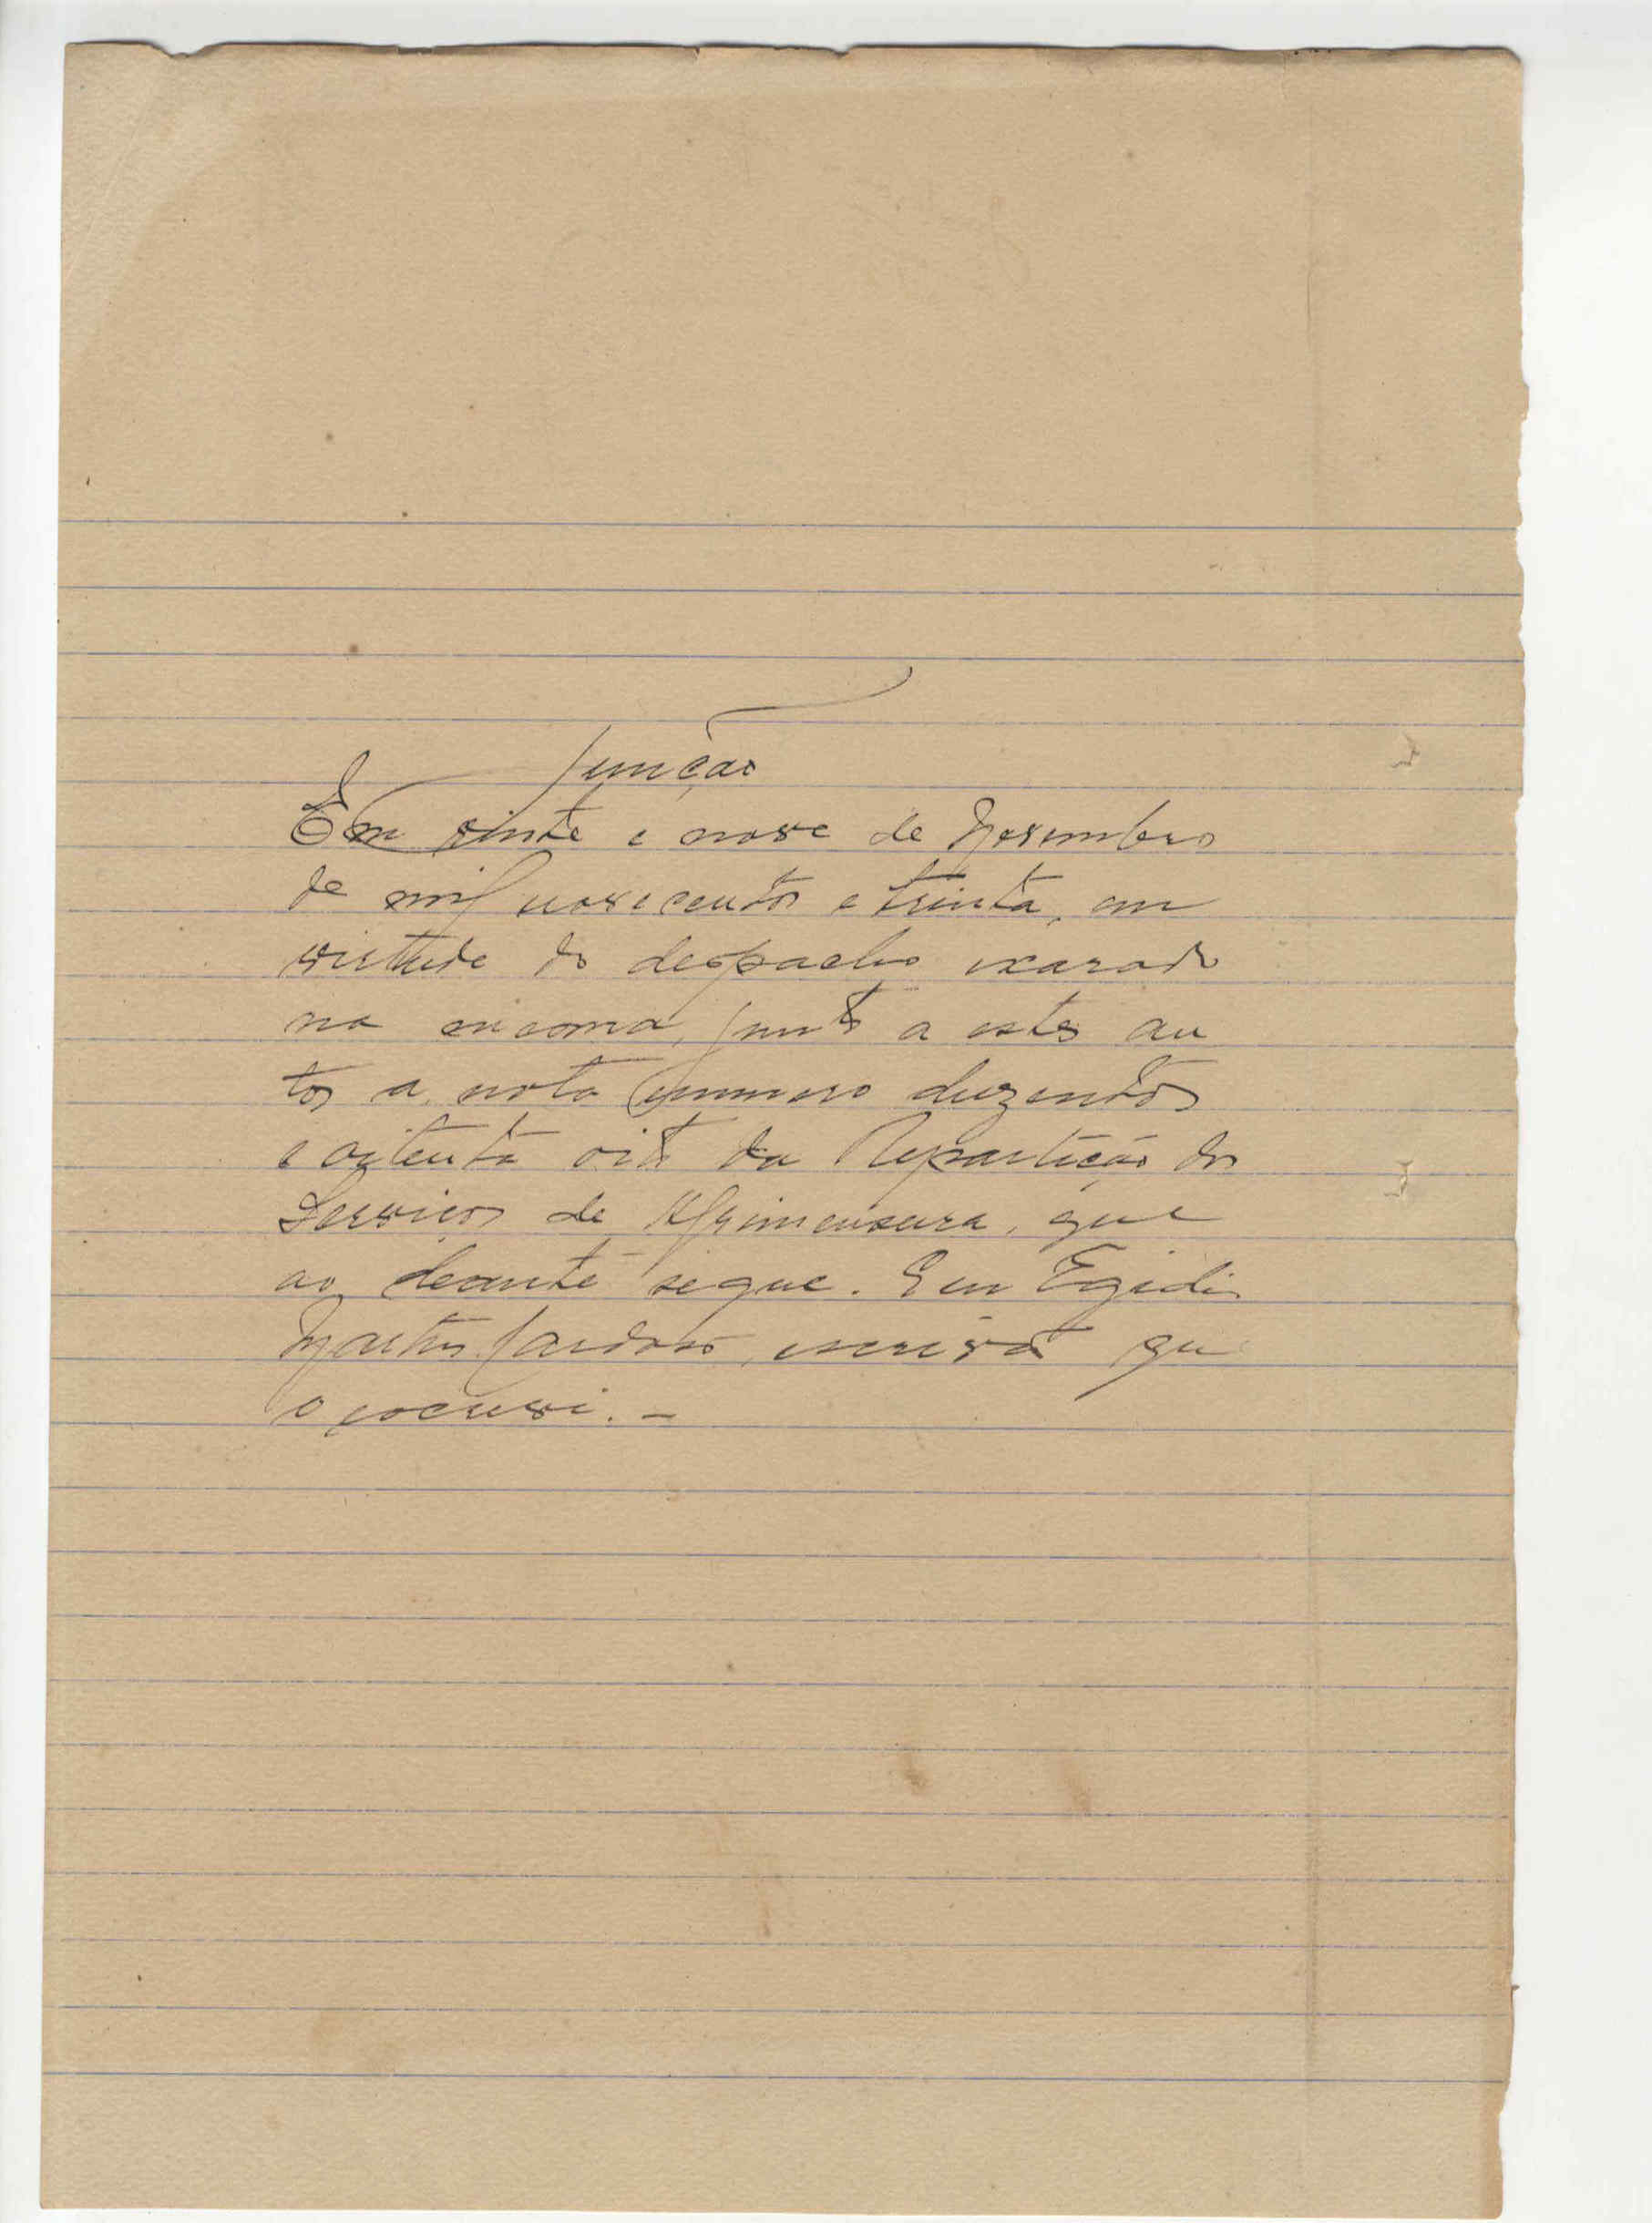 Junção
Em vinte e nove de Novembro
de mil novecentos e trinta, em
virtude do despacho exarado
na  junto a estes au
tos a nota numero duzentos
e oitenta oito da Repartição dos
Serviços de Agrimensura, que
ao deante segue. E eu Egidio
Martins Cardoso, escrivão que
o escrevi. -